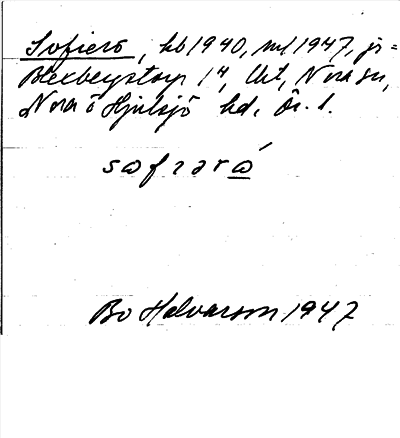 Sofierō, hb 1940, ml 1947, js =
Blexbergstorp 1⁴, Ut, Nora sn,
Nora ō Hjulsjö hd, Ör. l.
sofıəró
Bo Halvarson 1947